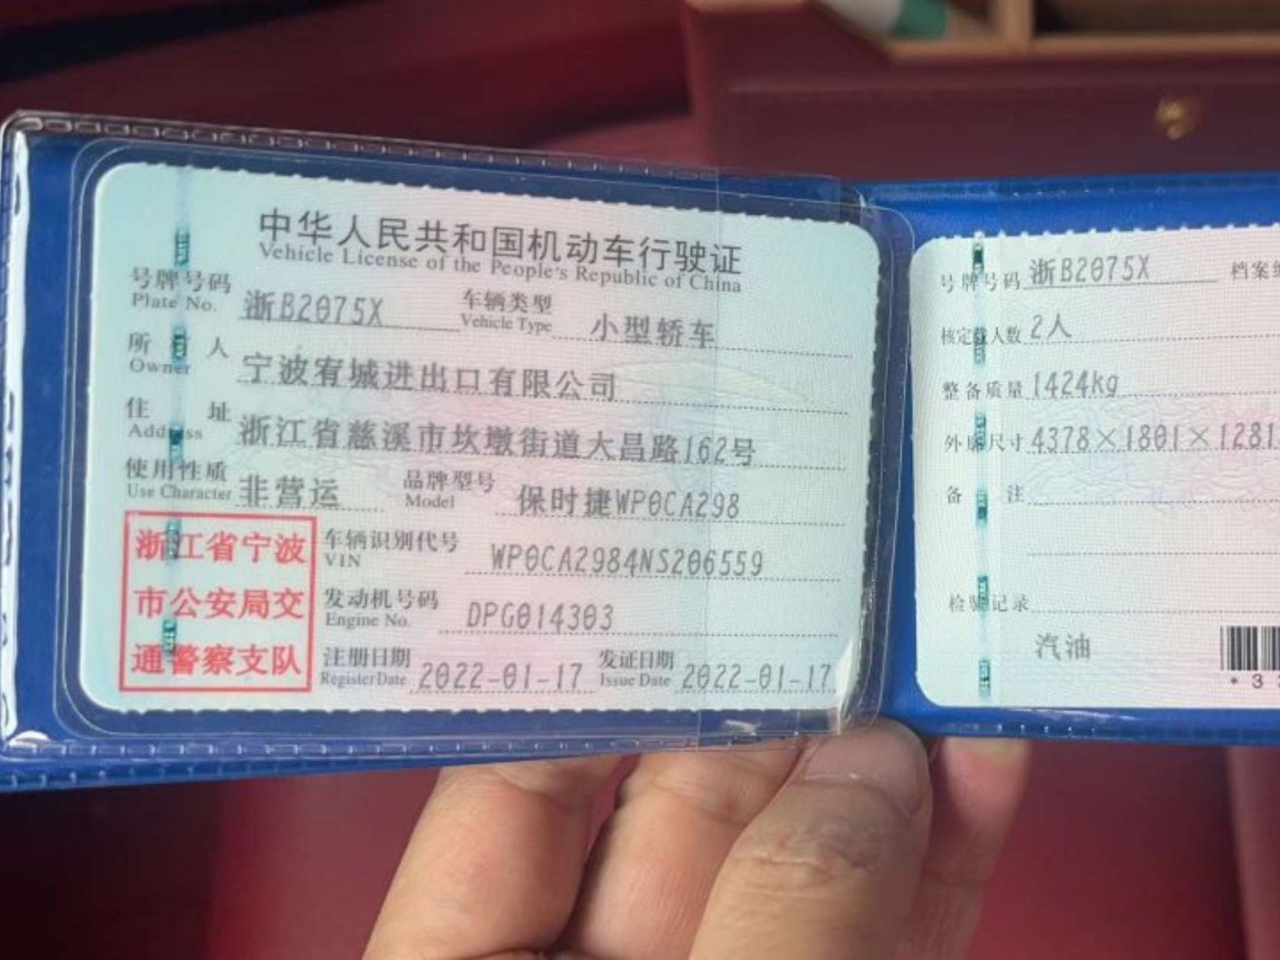 中华人民共和国机动车行驶证
Vehicle License of the People's Republic of China
号牌号码 浙B2075X 车辆类型 小型轿车
Plate No. Vehicle Type
所有人 宁波宥城进出口有限公司
Owner
住址 浙江省慈溪市坎墩街道大昌路162号
Address
使用性质 非营运 品牌型号 保时捷WP0CA298
Use Character Model
浙江省宁波
市公安局交
通警察支队
车辆识别代号 WP0CA2984NS206559
VIN
发动机号码 DPG014303
Engine No.
注册日期 2022-01-17 发证日期 2022-01-17
Register Date Issue Date
号牌号码 浙B2075X 档案
核定载人数 2人
整备质量 1424kg
外廓尺寸 4378×1801×1281
备注
检验记录
汽油
*3